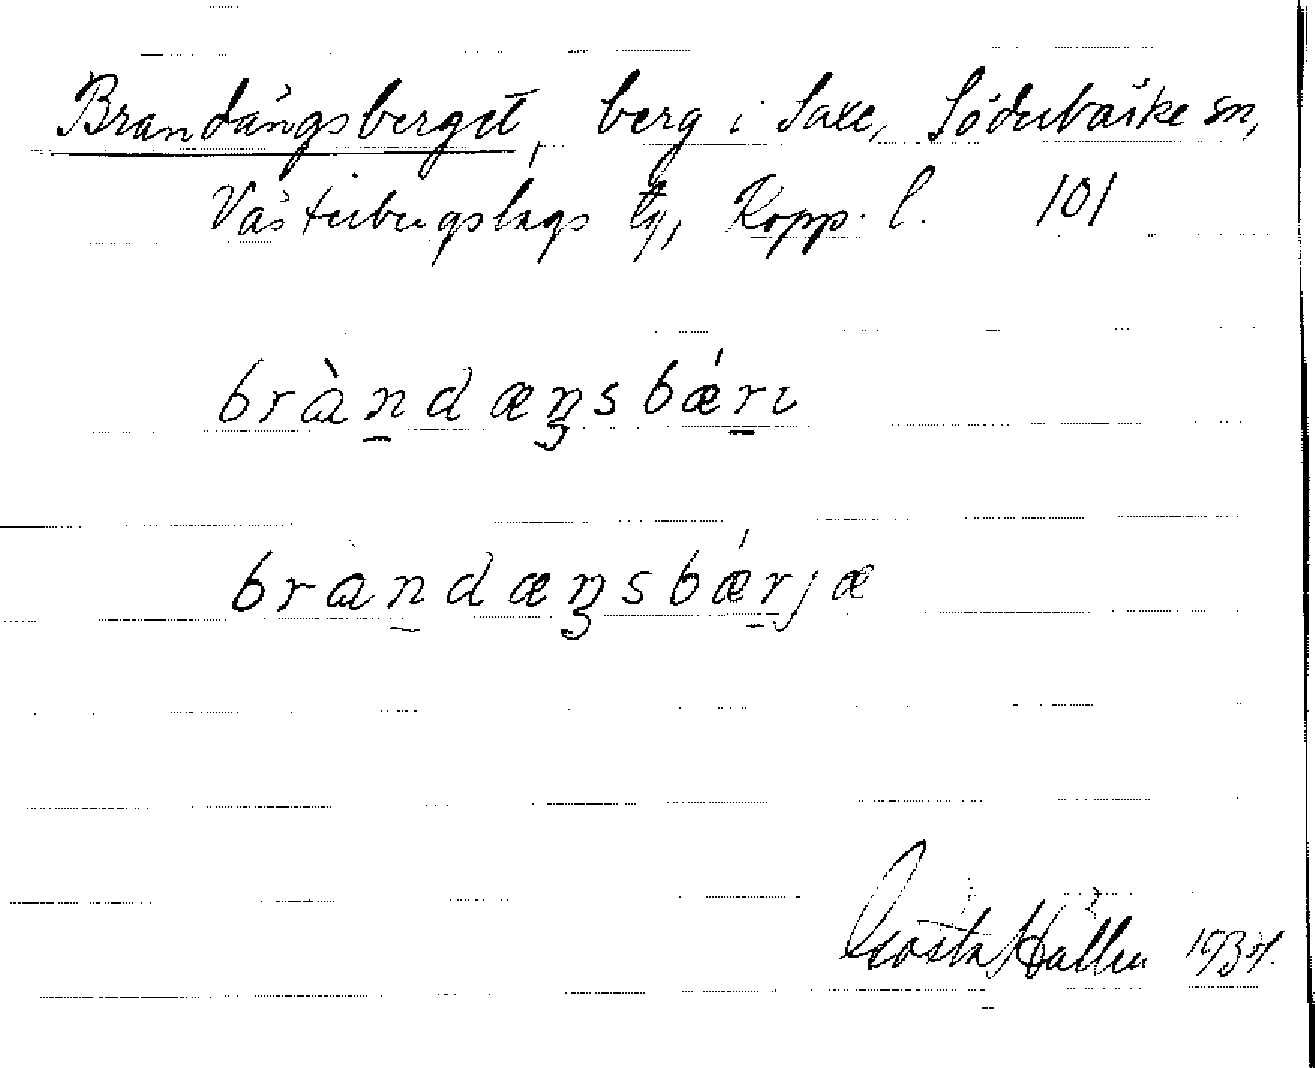 Brandängsberget, berg i Saxe, Söderbärke sn,
Västerbergslags tg, Kopp. l. 101
bràn̠dæŋsbǽr̠ɩ
bràn̠dæŋsbǽr̠jæ
Gösta Hallen